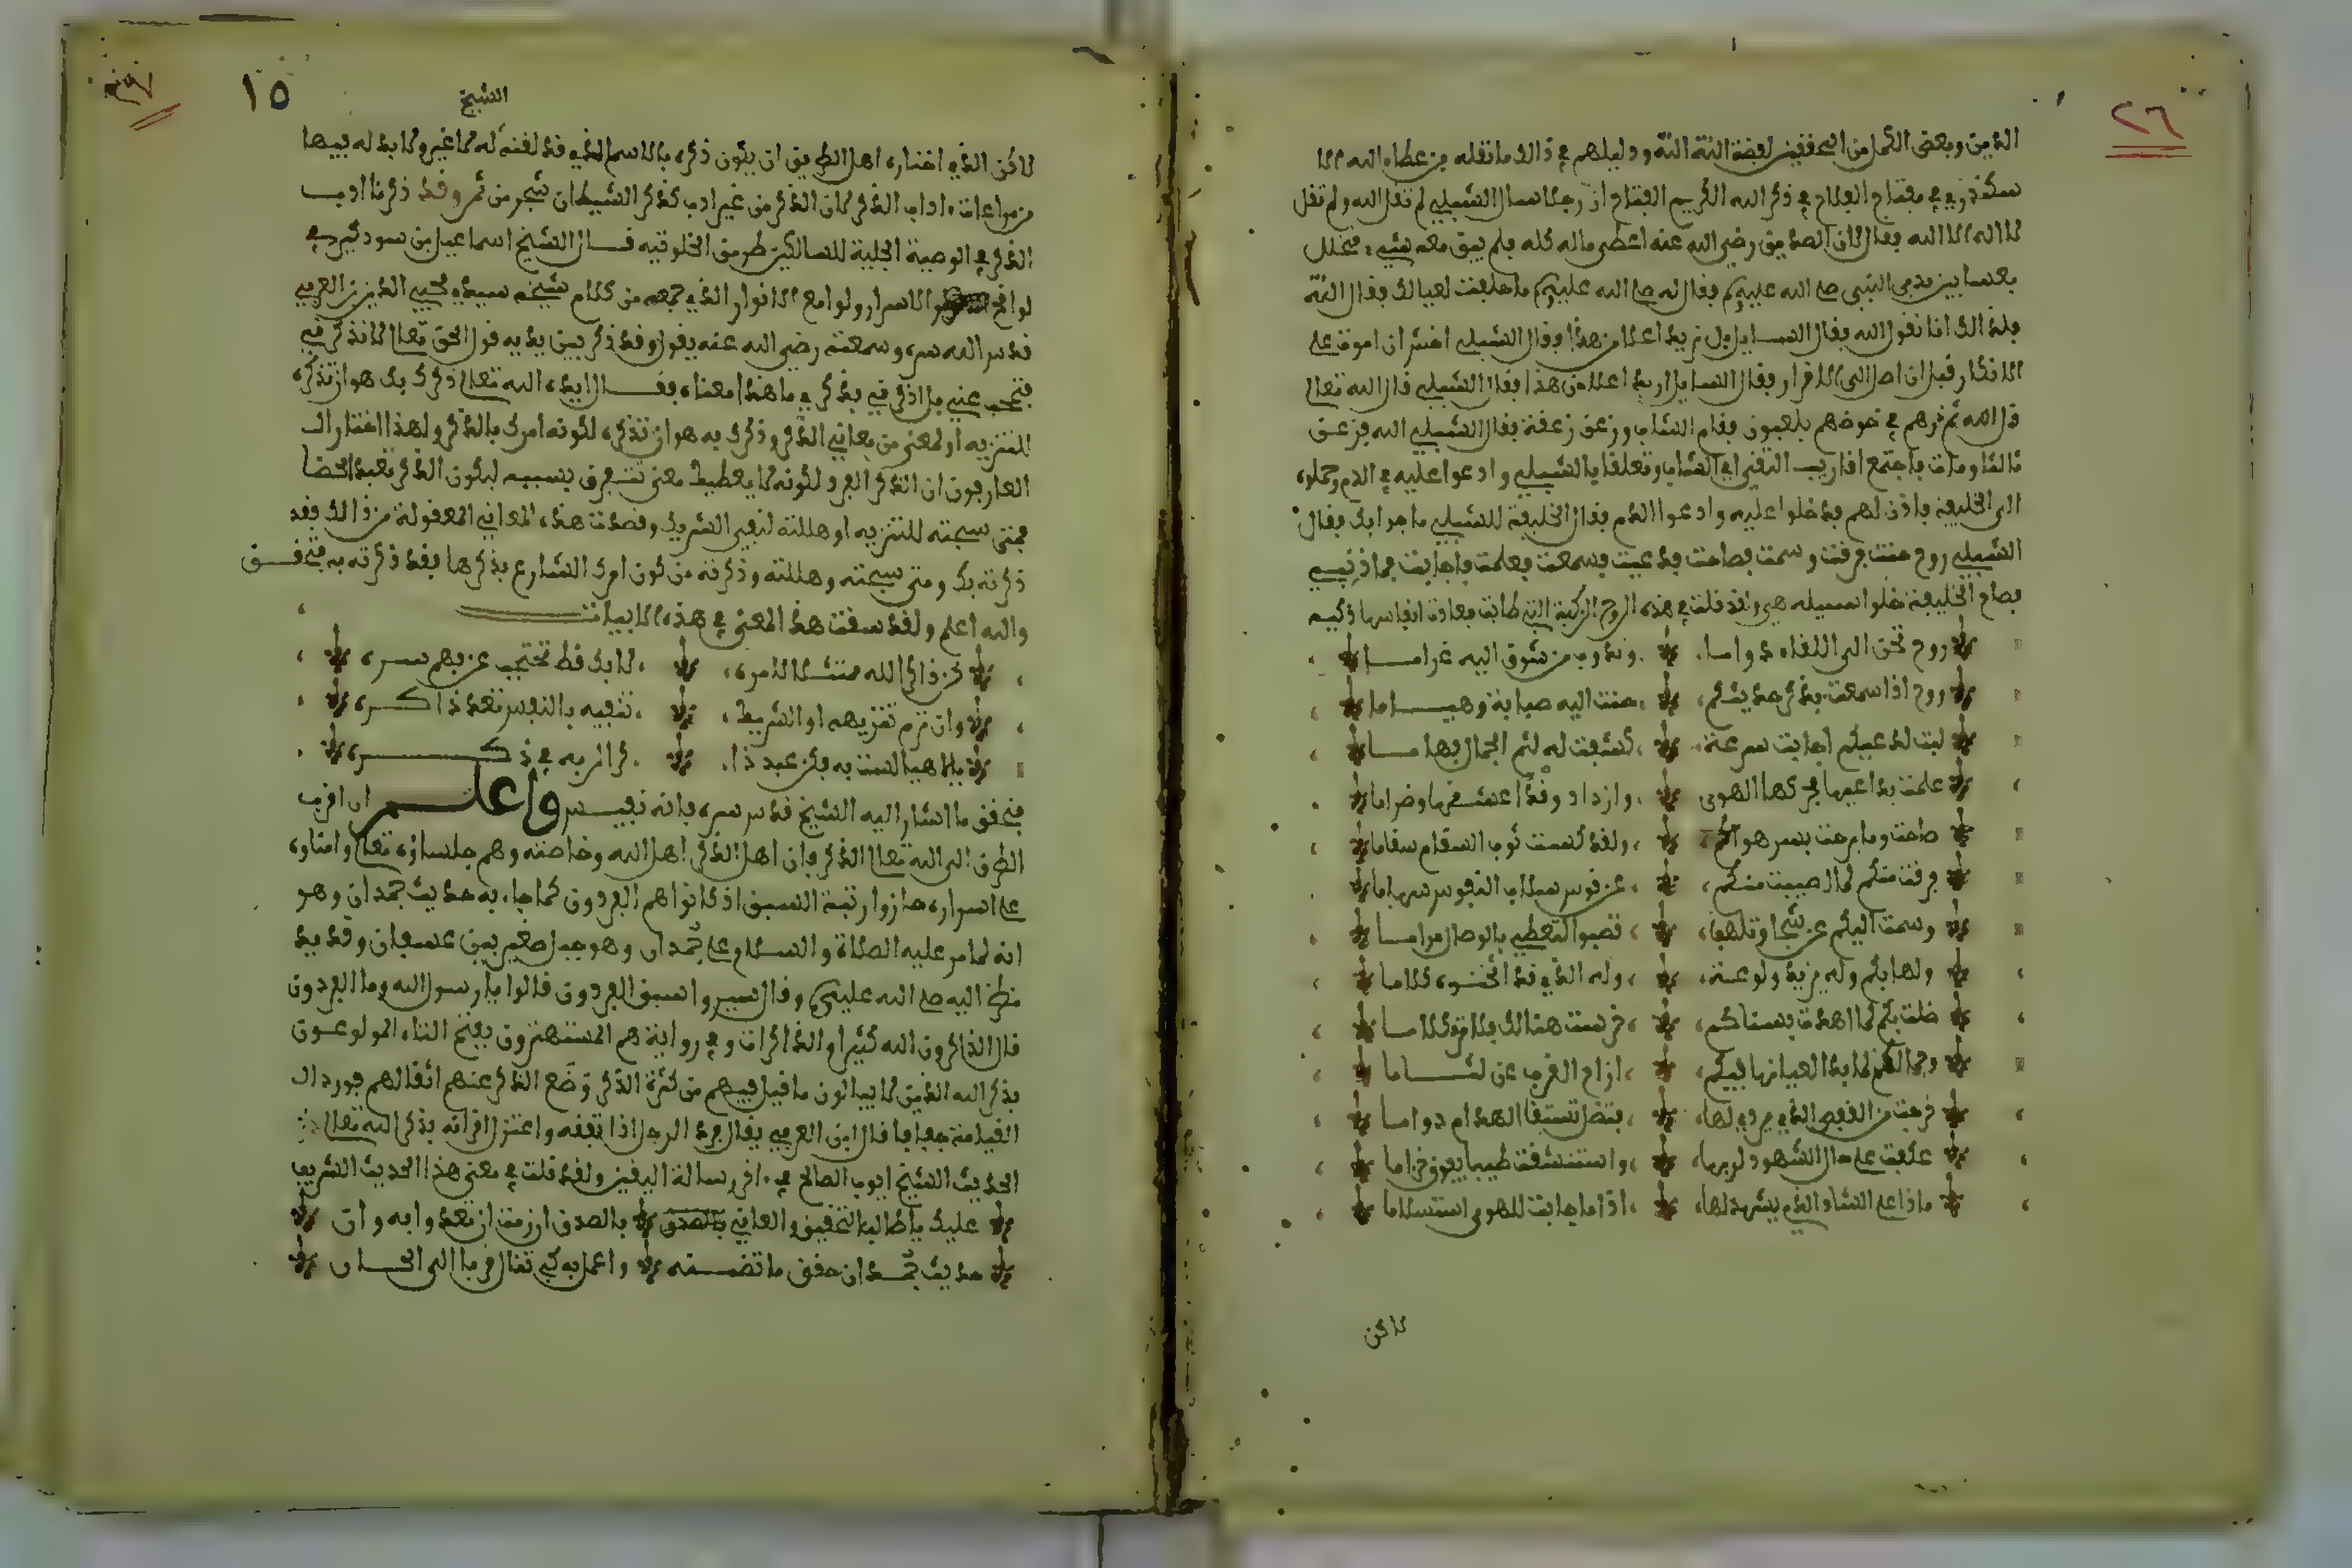 ٢٦
الدين وبعض الكمل من المحققين لفظة الله الله ودليلهم في ذالك ما نقله بن عطاء الله الا
سكندري في مفتاح الفلاح في ذكر الله الكريم الفتاح ان رجلا سال الشبلي لم تقل الله ولم تقل
لا اله الا الله فقال لان الصديق رضي الله عنه اعطى ماله كله فلم يبق معه شيء فتخلل
بعسا بين يدي النبي صلى الله عليه وسلم فقال له صلى الله عليه وسلم ما خلفت لعيالك فقال الله
فكذالك انا نقول الله فقال السايل بل نريد اعلا من هذا فقال الشبلي اخش ان اموت على
الانكار قبل ان اصل الى الاقرار فقال السايل اريد اعلا من هذا فقال الشبلي قال الله تعالى
قل الله ثم ذرهم في خوضهم يلعبون فقام الشاب وزعق زعقة فقال الشبلي الله فزعق
ثالثا ومات فاجتمع اقارب الفتى اي الشاب وتعلقا بالشبلي وادعوا عليه في الدم وحملوه
الى الخليفة فاذن لهم فدخلوا عليه وادعوا الدم فقال الخليفة للشبلي ما جوابك فقال
الشبلي روح حنت فرقت وسمت فصاحت فدعيت فسمعت فعلمت فاجابت فما ذنبي
فصاح الخليفة خلوا سبيله هي وقد قلت في هذه الروح الزكية التي طابت فعادت انفاسها ذكيه
روح تحن الى اللقاء دواما وتذوب من شوق اليه غراما
روح اذا سمعت بذكر حديثكم حنت اليه صبابة وهياما
لبت لدعيكم اجابت سرعة كشفت له لثم الجمال فهاما
علمت بداعيها فحركها الهوى وازداد وقدا عشقها وضراما
صاحت وما برحت بسر هواكم ولقد كست ثوب السقام سقاما
فرقت منكم لما اصيبت منكم عن قوس سلاب النفوس سهاما
وسمت اليكم عن شجا وتلهف تصبوا لتعطي بالوصال مراما
ولها بكم وله يزيد ولوعة وله الذي قد اخفوه كلاما
خلت بكم لما اهدت بسناكم خرست هنالك فلا ترى كلاما
وجمالكم لما بدا لعيانها فيكم ازاح الغرب عن لثاما
فرحت من الفيض الذي يروي لها بتضل تستسقا الهدام دواما
عكفت على حال الشهود لربها واستنشقت طيبا يفوق خزاما
ماذا على الشاد الذي يشهد لها اذا ما جابت للهوى استسلاما
لاكن
١٥
الشيخ
لاكن الذي اختاره اهل الطريق ان يكون ذكره بالاسم الذي قد لقنه له لا غير ولا بد له فيها
من مراعات اداب الذكر لان الذكر من غير ادب كذكر الشيطان شجر من ثمر وقد ذكرنا ادب
الذكر في الوصية الجلية للسالكين طريق الخلوتيه قال الشيخ اسماعيل بن سودكين في
لواقح الاسرار ولوامع الانوار الذي جمعه من كلام شيخه سيدي محيي الدين بن العربي
قدس الله سره وسمعته رضي الله عنه يقول وقد ذكر بين يديه قول الحق تعالى لا تذكرني
فتحجب عني بل اذكرني بذكري ما هذا معناه فقال ايده الله تعالى ذكرك بك هو ان تذكره
للتنزيه او لمعنى من معاني الذكر وذكرك به هو ان تذكره لكونه امرك بالذكر ولهذا اختار ال
العارفون ان الذكر المفرد لكونه لا يعطيك معنى تتعرف بسببه ليكون الذكر تعبدا محضا
فمتى سبحته للتنزيه او هللته لنفي الشريك وقصدت هذه المعاني المعقولة من ذالك فقد
ذكرته بك ومتى سبحته وهللته وذكرته من كون امرك الشارع بذكرها فقد ذكرته به فتحقق
والله اعلم ولقد سقت هذا المعنى في هذه الابيات
كن ذاكر الله ممتثلا لامره لا بك قط تحتجب عن بهم سره
وان ترم تنزيهه او الشريك تنفيه بالنفس تغد ذاكره
يا لاهيا لست به فكن عبد ذا كر الربه في ذكره
فتحقق ما اشار اليه الشيخ قدس سره فانه نفيس واعلم ان اقرب
الطرق الى الله تعالى الذكر فان اهل الذكر اهل الله وخاصته وهم جلساؤه تعالى وامناؤه
على اسراره حازوا رتبة السبق اذ كانوا هم المفردون كما جاء به حديث جمدان وهو
انه لما مر عليه الصلاة والسلام على جمدان وهو جبل صغير بين عسفان وقديد
نظر اليه صلى الله عليه وسلم وقال سيروا سبق المفردون قالوا يا رسول الله وما المفردون
قال الذاكرون الله كثيرا والذاكرات وفي رواية هم المستهترون بفتح التاء المولوعون
بذكر الله الذين لا يبالون ما قيل فيهم من كثرة الذكر وضع الذكر عنهم اثقالهم فورد ال
القيامة خفافا قال ابن العربي يقال فرد الرجل اذا تفقه واعتزل اقرانه بذكر الله تعالى
الحديث الشيخ ايوب الصالحي في اخر رسالة اليقين ولقد قلت في معنى هذا الحديث الشريف
عليك يا طالب التحقيق والعاني بالصدق ان رمت ان تغدوا به وان
حديث جمدان حقق ما تضمنه واعمل به كي تنال قربا الى الحان